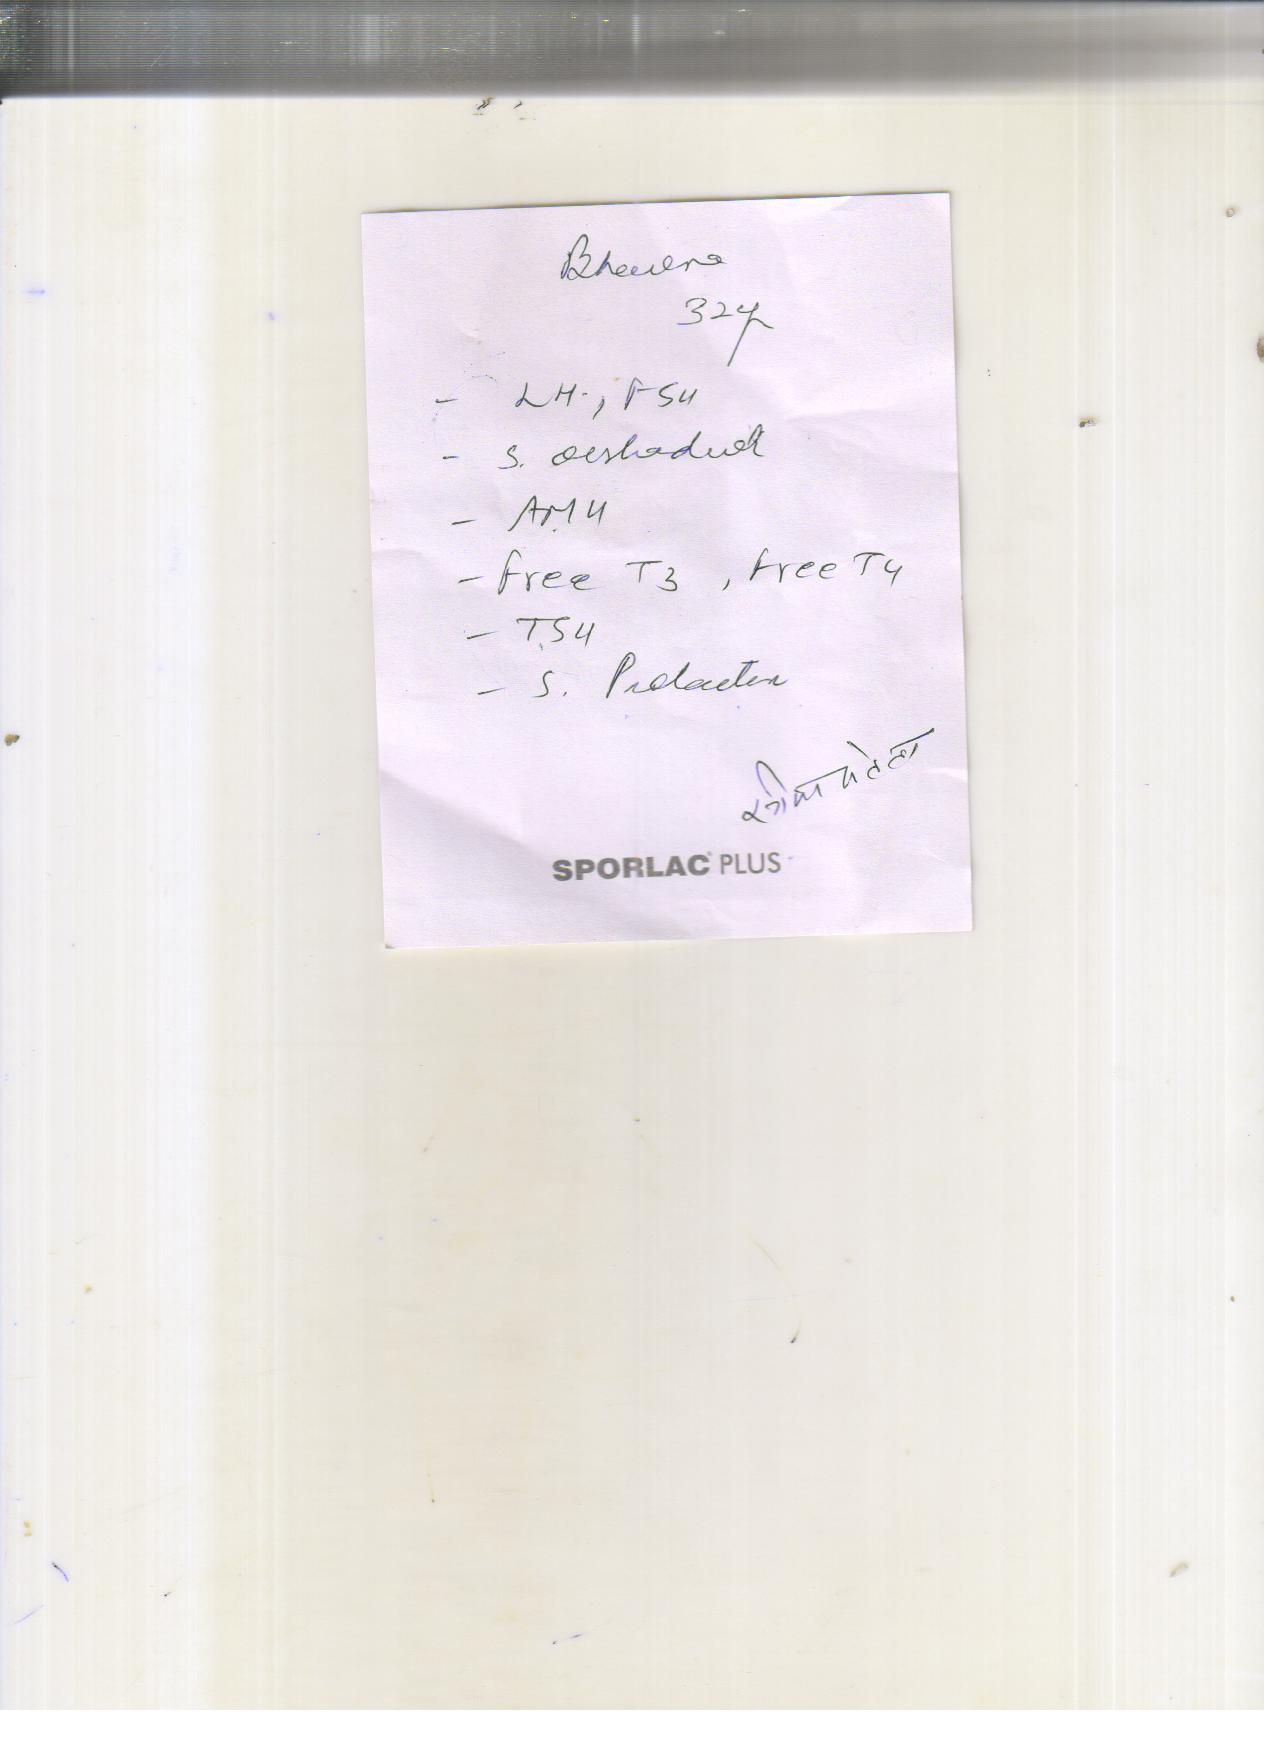 Bhawna
32y
- LH, FSH
- S. oestradiol
- AMH
- Free T3, Free T4
- TSH
- S. Prolactin
SPORLAC PLUS